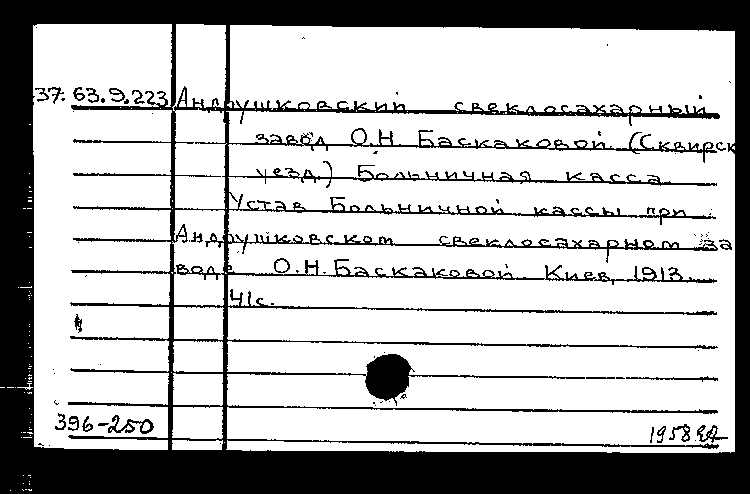 37: 63.9.223 Андрушковский свеклосахарный
завод О.Н. Баскаковой (Сквирск
уезд.) Больничная касса
Устав Больничной кассы при
Андрушковском свеклосахарном за
воде О.Н. Баскаковой. Киев, 1913.
41с.
396-250
1958